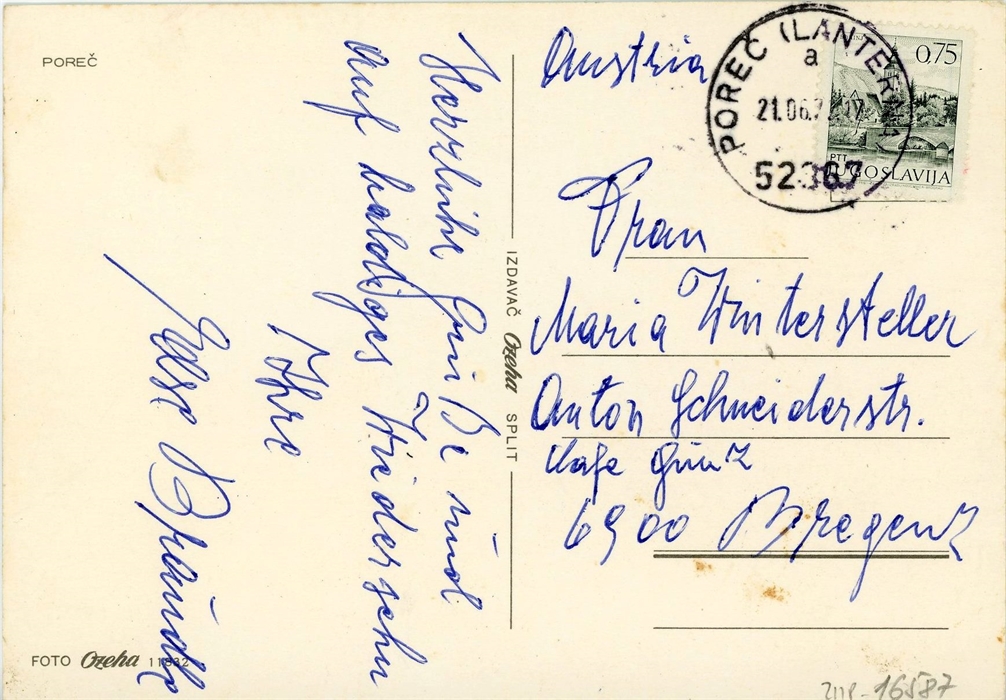 POREČ
Herzliche Grüße und
auf baldiges Wiedersehn
Ihre
Else
IZDAVAČ Ozeha SPLIT
FOTO Ozeha 11832
Austria
POREČ (LANTERNA)
a
21.06.
52367
0,75
PTT
JUGOSLAVIJA
Frau
Maria Wintersteller
Anton Schneiderstr.
Kafe Günz
6900 Bregenz
16587